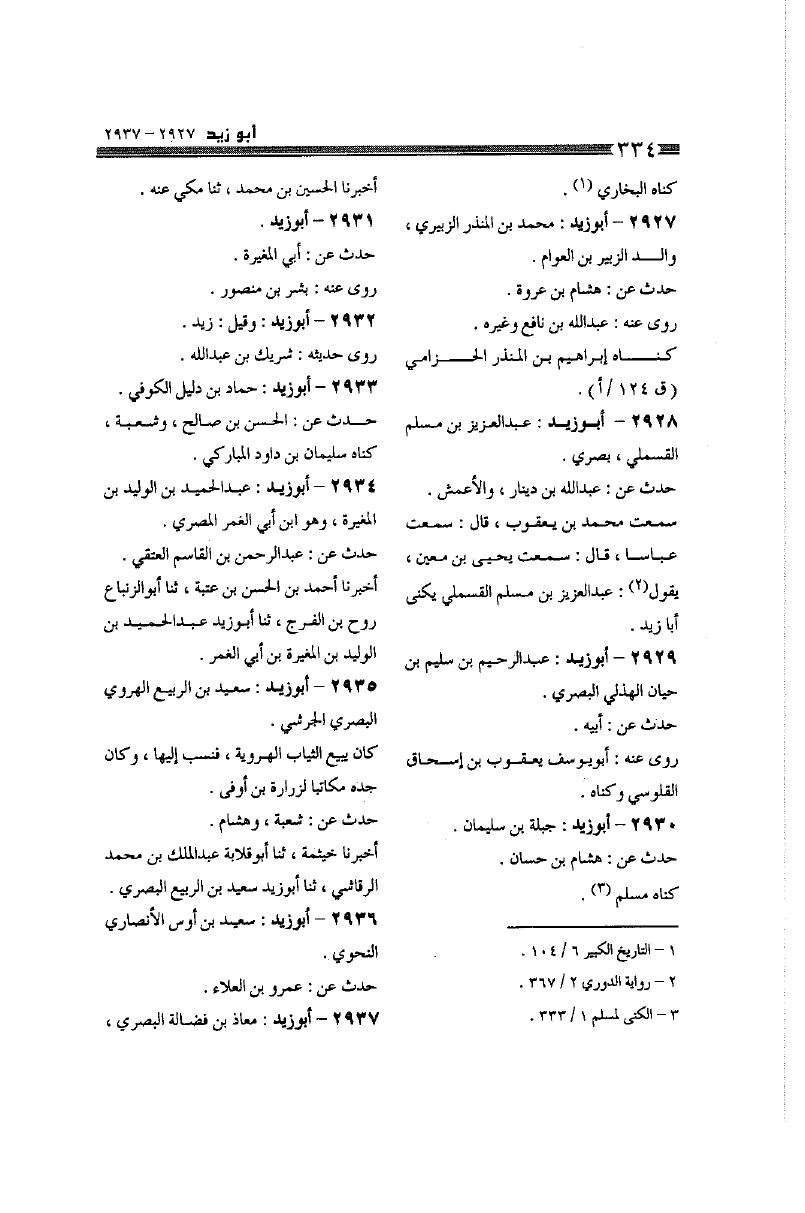 أبو زيد ٢٩٢٧ – ٢٩٣٧
٣٣٤
كناه البخاري (١) .
٢٩٢٧ – أبوزيد : محمد بن المنذر الزبيري ،
والـــد الزبير بن العوام .
حدث عن : هشام بن عروة .
روى عنه : عبدالله بن نافع وغيره .
كـنـــاه إبراهيم بـن المـنذر الحـــزامي
(ق ١٢٤ /أ) .
٢٩٢٨ – أبـوزيـد : عبدالعزيز بن مسلم
القسملي ، بصري .
حدث عن : عبدالله بن دينار ، والأعمش .
سمعت محمد بن يعقوب ، قال : سمعت
عباسا ، قال : سمعت يحيى بن معين ،
يقول(٢) : عبدالعزيز بن مسلم القسملي يكنى
أبا زيد .
٢٩٢٩ – أبوزيد : عبدالرحيم بن سليم بن
حيان الهذلي البصري .
حدث عن : أبيه .
روى عنه : أبويوسف يعقوب بن إسحاق
القلوسي وكناه .
٢٩٣٠ – أبوزيد : جبلة بن سليمان .
حدث عن : هشام بن حسان .
كناه مسلم (٣) .
١ – التاريخ الكبير ٦ / ١٠٤ .
٢ – رواية الدوري ٢ / ٣٦٧ .
٣ – الكنى لمسلم ١ / ٣٣٣ .
أخبرنا الحسين بن محمد ، ثنا مكي عنه .
٢٩٣١ – أبوزيد .
حدث عن : أبي المغيرة .
روى عنه : بشر بن منصور .
٢٩٣٢ – أبوزيد : وقيل : زيد .
روى حديثه : شريك بن عبدالله .
٢٩٣٣ – أبوزيد : حماد بن دليل الكوفي .
حـــدث عن : الحسن بن صالح ، وشعبة ،
كناه سليمان بن داود المباركي .
٢٩٣٤ – أبوزيد : عبدالحميد بن الوليد بن
المغيرة ، وهو ابن أبي الغمر المصري .
حدث عن : عبدالرحمن بن القاسم العتقي .
أخبرنا أحمد بن الحسن بن عتبة ، ثنا أبوالزنباع
روح بن الفرج ، ثنا أبوزيد عبدالحميد بن
الوليد بن المغيرة بن أبي الغمر .
٢٩٣٥ – أبوزيد : سعيد بن الربيع الهروي
البصري الجرشي .
كان يبيع الثياب الهروية ، فنسب إليها ، وكان
جده مكاتبا لزرارة بن أوفى .
حدث عن : شعبة ، وهشام .
أخبرنا خيثمة ، ثنا أبوقلابة عبدالملك بن محمد
الرقاشي ، ثنا أبوزيد سعيد بن الربيع البصري .
٢٩٣٦ – أبوزيد : سعيد بن أوس الأنصاري
النحوي .
حدث عن : عمرو بن العلاء .
٢٩٣٧ – أبوزيد : معاذ بن فضالة البصري ،